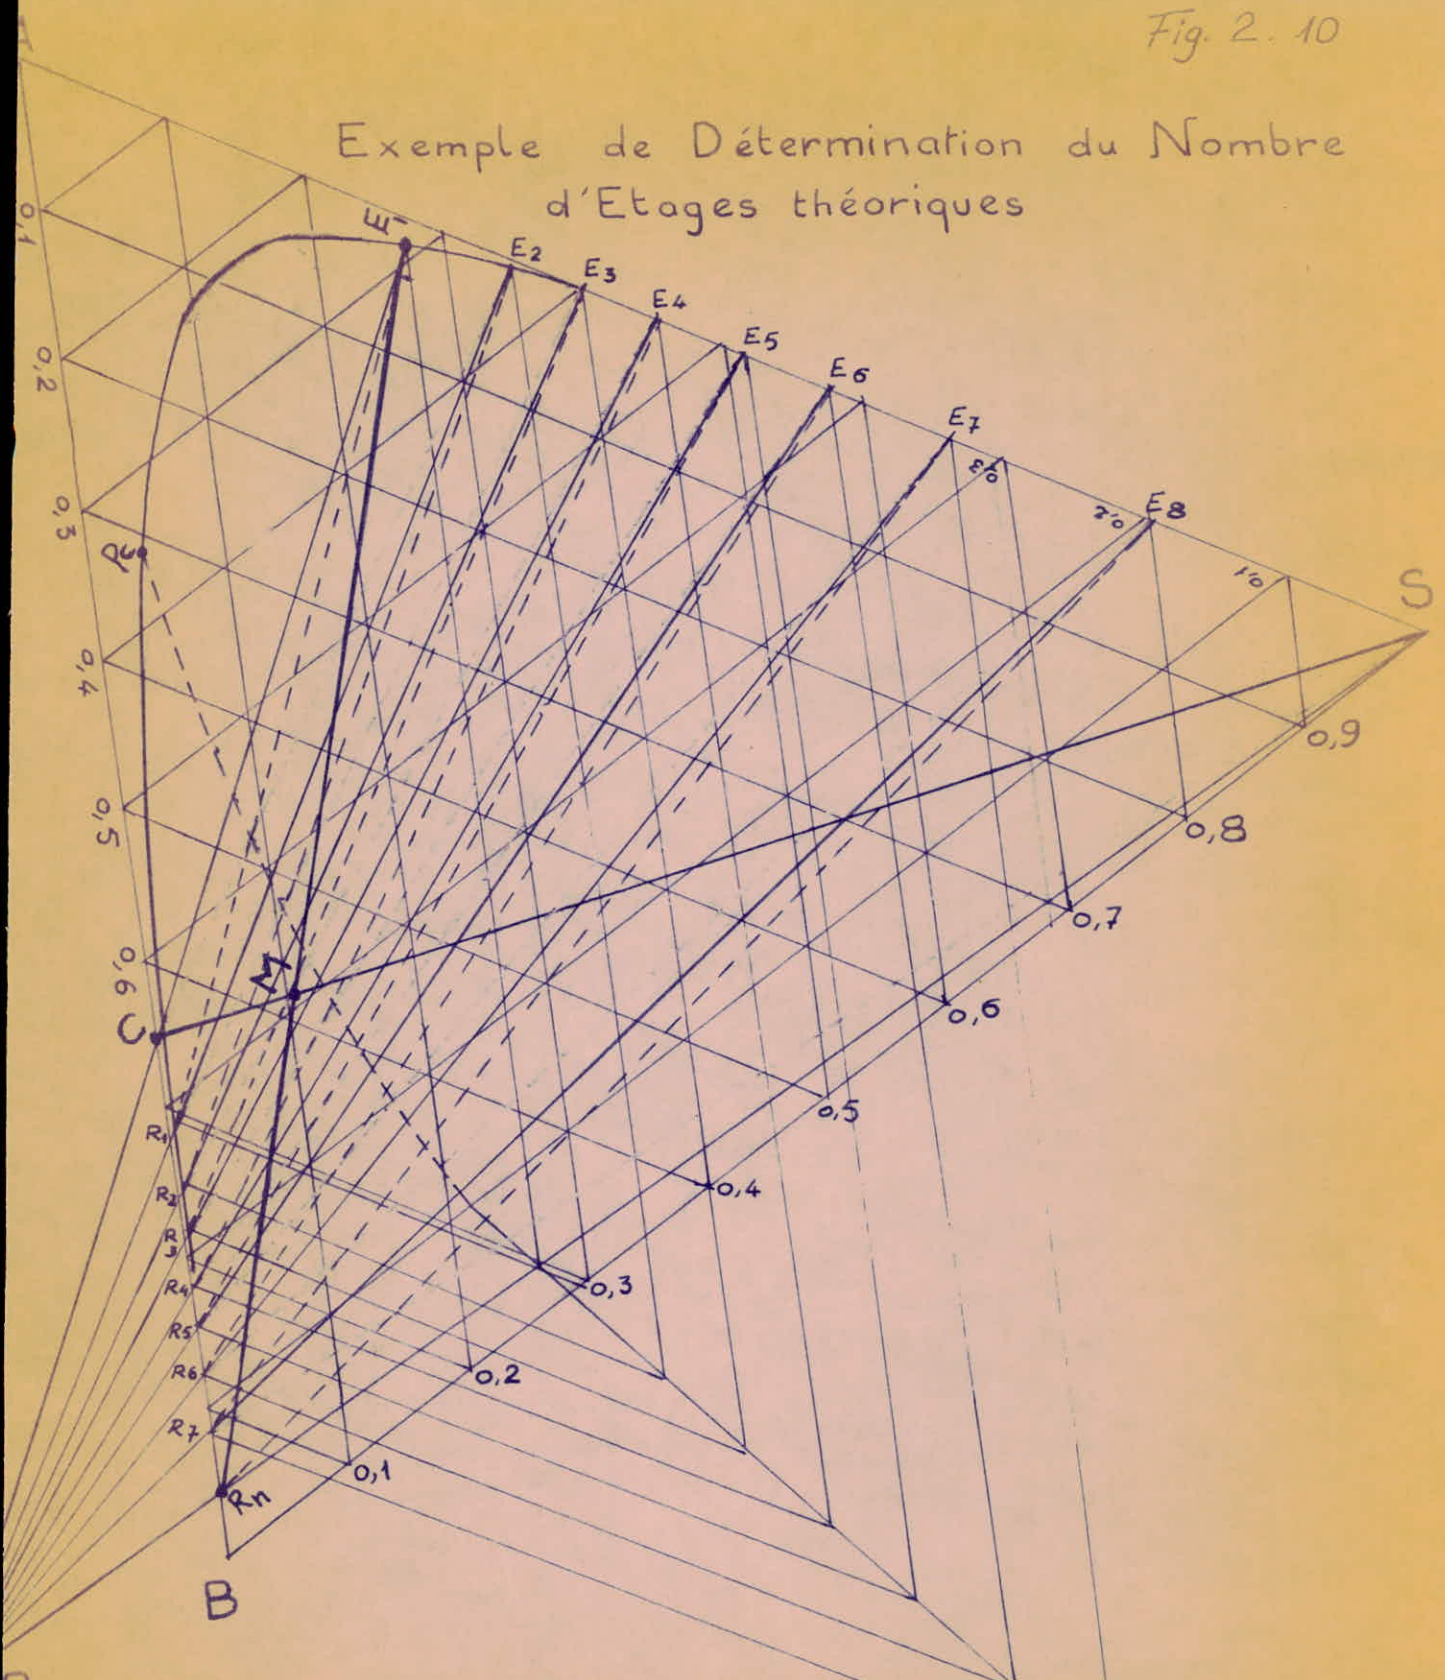 Fig. 2. 10
Exemple de Détermination du Nombre
d'Etages théoriques
A
0,1
0,2
0,3
0,4
0,5
0,6
C
M
E1
E2
E3
E4
E5
E6
E7
E8
0,3
0,2
0,1
S
0,9
0,8
0,7
0,6
0,5
0,4
0,3
0,2
0,1
R1
R2
R3
R4
R5
R6
R7
Rn
B